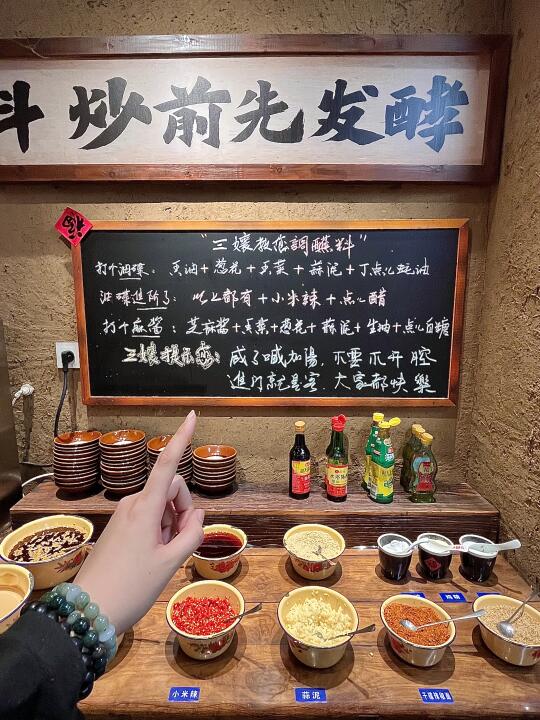 料 炒前先发酵
"三孃教您調蘸料"
打个油碟：香油+葱花+香菜+蒜泥+丁点儿蚝油
油碟進階了：以上都有+小米辣+点儿醋
打个麻酱：芝麻酱+香菜+葱花+蒜泥+生抽+点儿白糖
三孃提示您：咸了喊加湯，不要不开腔
進门就是客，大家都快樂
小米辣
蒜泥
干碟辣椒面